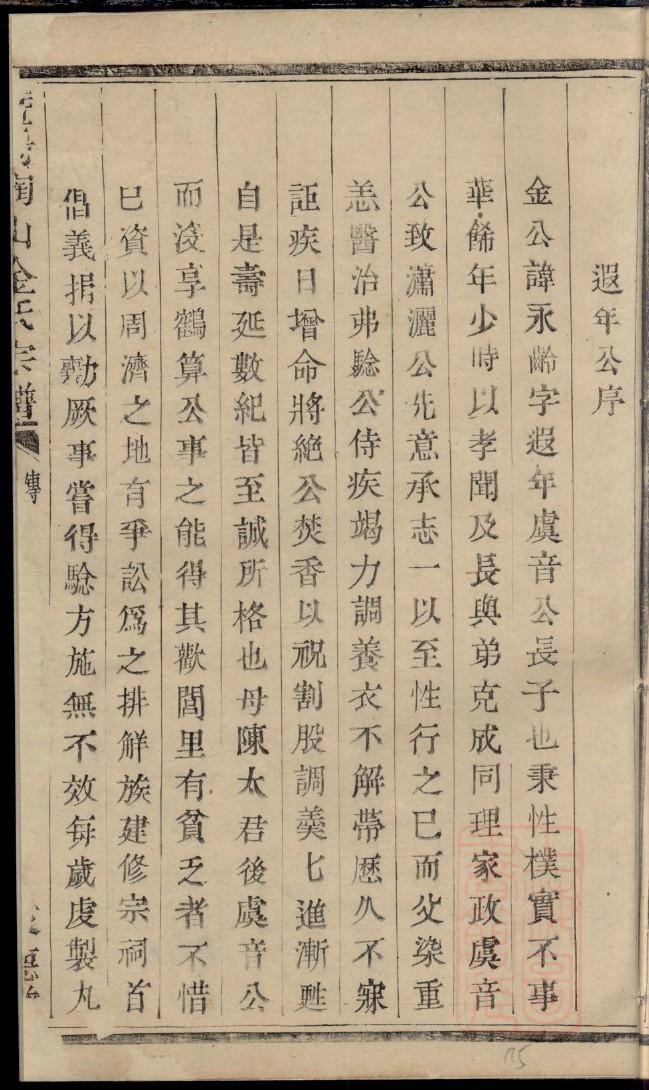 遐年公序
金公諱永齡字遐年虞音公長子也秉性樸實不事
華餙年少時以孝聞及長與弟克成同理家政虞音
公致瀟灑公先意承志一以至性行之已而父染重
恙醫治弗騐公侍疾竭力調養衣不解帶歷久不寐
詎疾日增命將絕公焚香以祝割股調羮匕進漸甦
自是壽延數紀皆至誠所格也母陳太君後虞音公
而沒享鶴算公事之能得其歡閭里有貧乏者不惜
已資以周濟之地有爭訟爲之排觧族建修宗祠首
倡義捐以勷厥事嘗得騐方施無不效每歲虔製丸
南山金氏宗譜
傳